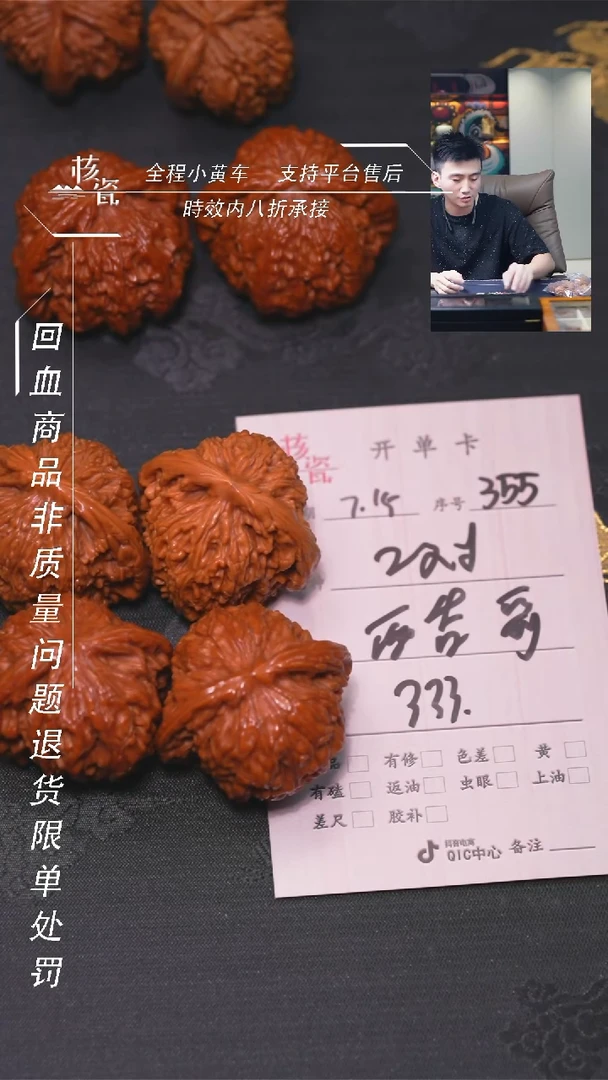 核瓷
全程小黄车 支持平台售后
時效内八折承接
回血商品非质量问题退货限单处罚
核瓷
开单卡
期 7.15 序号 355
333.
品 有修 色差 黄
有磕 返油 虫眼 上油
差尺 胶补
抖音电商
QIC中心 备注